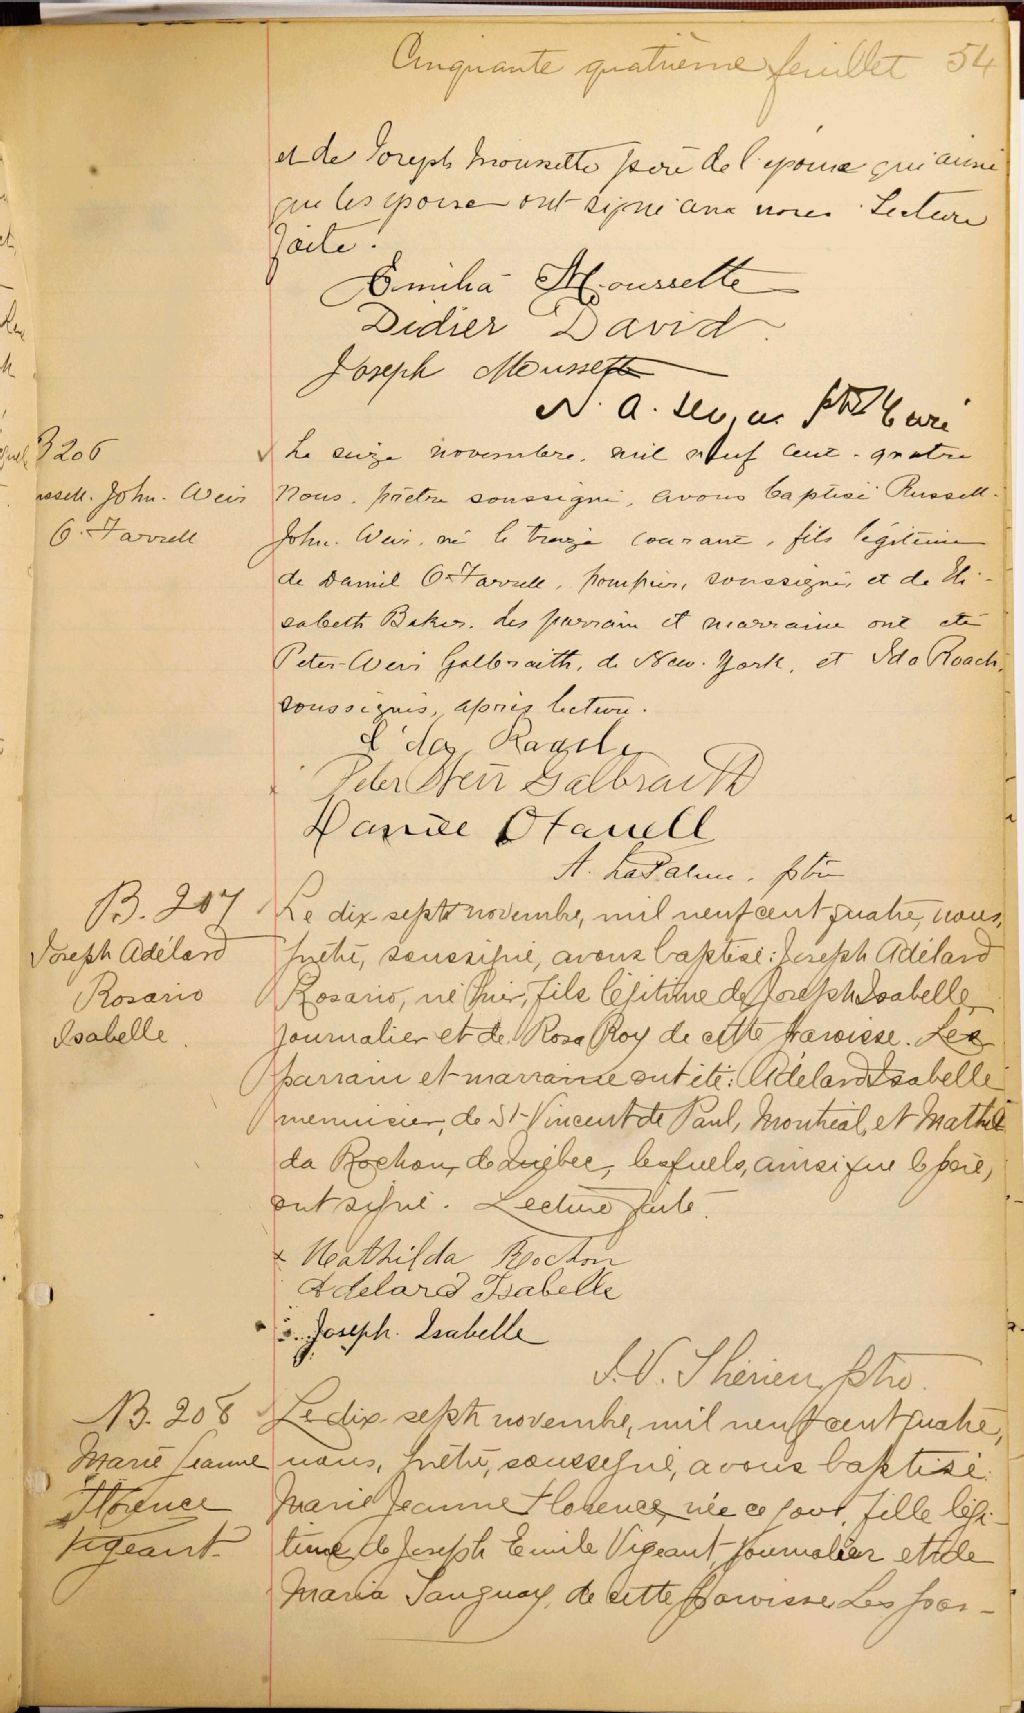 Cinquante quatrième feuillet 54
et de Joseph Moussette père de l'épouse qui ainsi
que les époux ont signé avec nous. Lecture
faite.
Emilia Moussette
Didier David
Joseph Moussette
N. A. ptre Curé
B 206
John. Weir
O'Farrell
Le seize novembre, mil neuf cent-quatre
Nous, prêtre soussigné, avons baptisé Russell-
John. Weir, né le treize courant, fils légitime
de Daniel O'Farrell, pompier, soussigné, et de Eli-
sabeth Baker. Les parrain et marraine ont été
Peter-Weir Galbraith, de New-York, et Ida Roach,
soussignés, après lecture.
Ida Roach
Peter Weir Galbraith
Daniel OFarrell
A. LaPalme, ptre
B. 207
Joseph Adélard
Rosario
Isabelle
Le dix-sept novembre, mil neuf cent quatre, nous,
prêtre, soussigné, avons baptisé: Joseph Adélard
Rosario, né hier, fils légitime de Joseph Isabelle
journalier et de Rosa Roy de cette paroisse. Les
parrain et marraine ont été: Adélard Isabelle
menuisier, de St-Vincent de Paul, Montréal, et Mathil
da Rochon, de Québec, lesquels, ainsi que le père,
ont signé. Lecture faite.
x Mathilda Rochon
Adelard Isabelle
Joseph. Isabelle
J. V. Thérien ptre.
B. 208
Marie Jeanne
Florence
Vigeant
Le dix-sept novembre, mil neuf cent quatre,
nous, prêtre, soussigné, avons baptisé:
Marie Jeanne Florence, née ce jour, fille légi-
time de Joseph Emile Vigeant, journalier et de
Maria Tanguay, de cette paroisse. Les par-